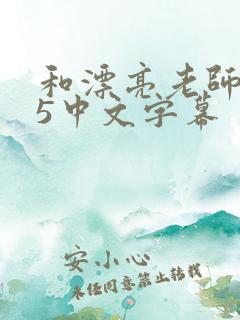 和漂亮老師
5中文字幕
安小心
未经同意禁止转载